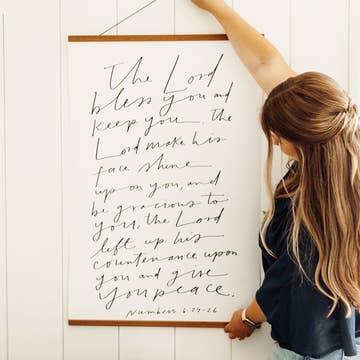 The Lord
bless you and
keep you. The
Lord make his
face shine
upon you, and
be gracious to
you, the Lord
lift up his
countenance upon
you and give
you peace.
Numbers 6:24-26